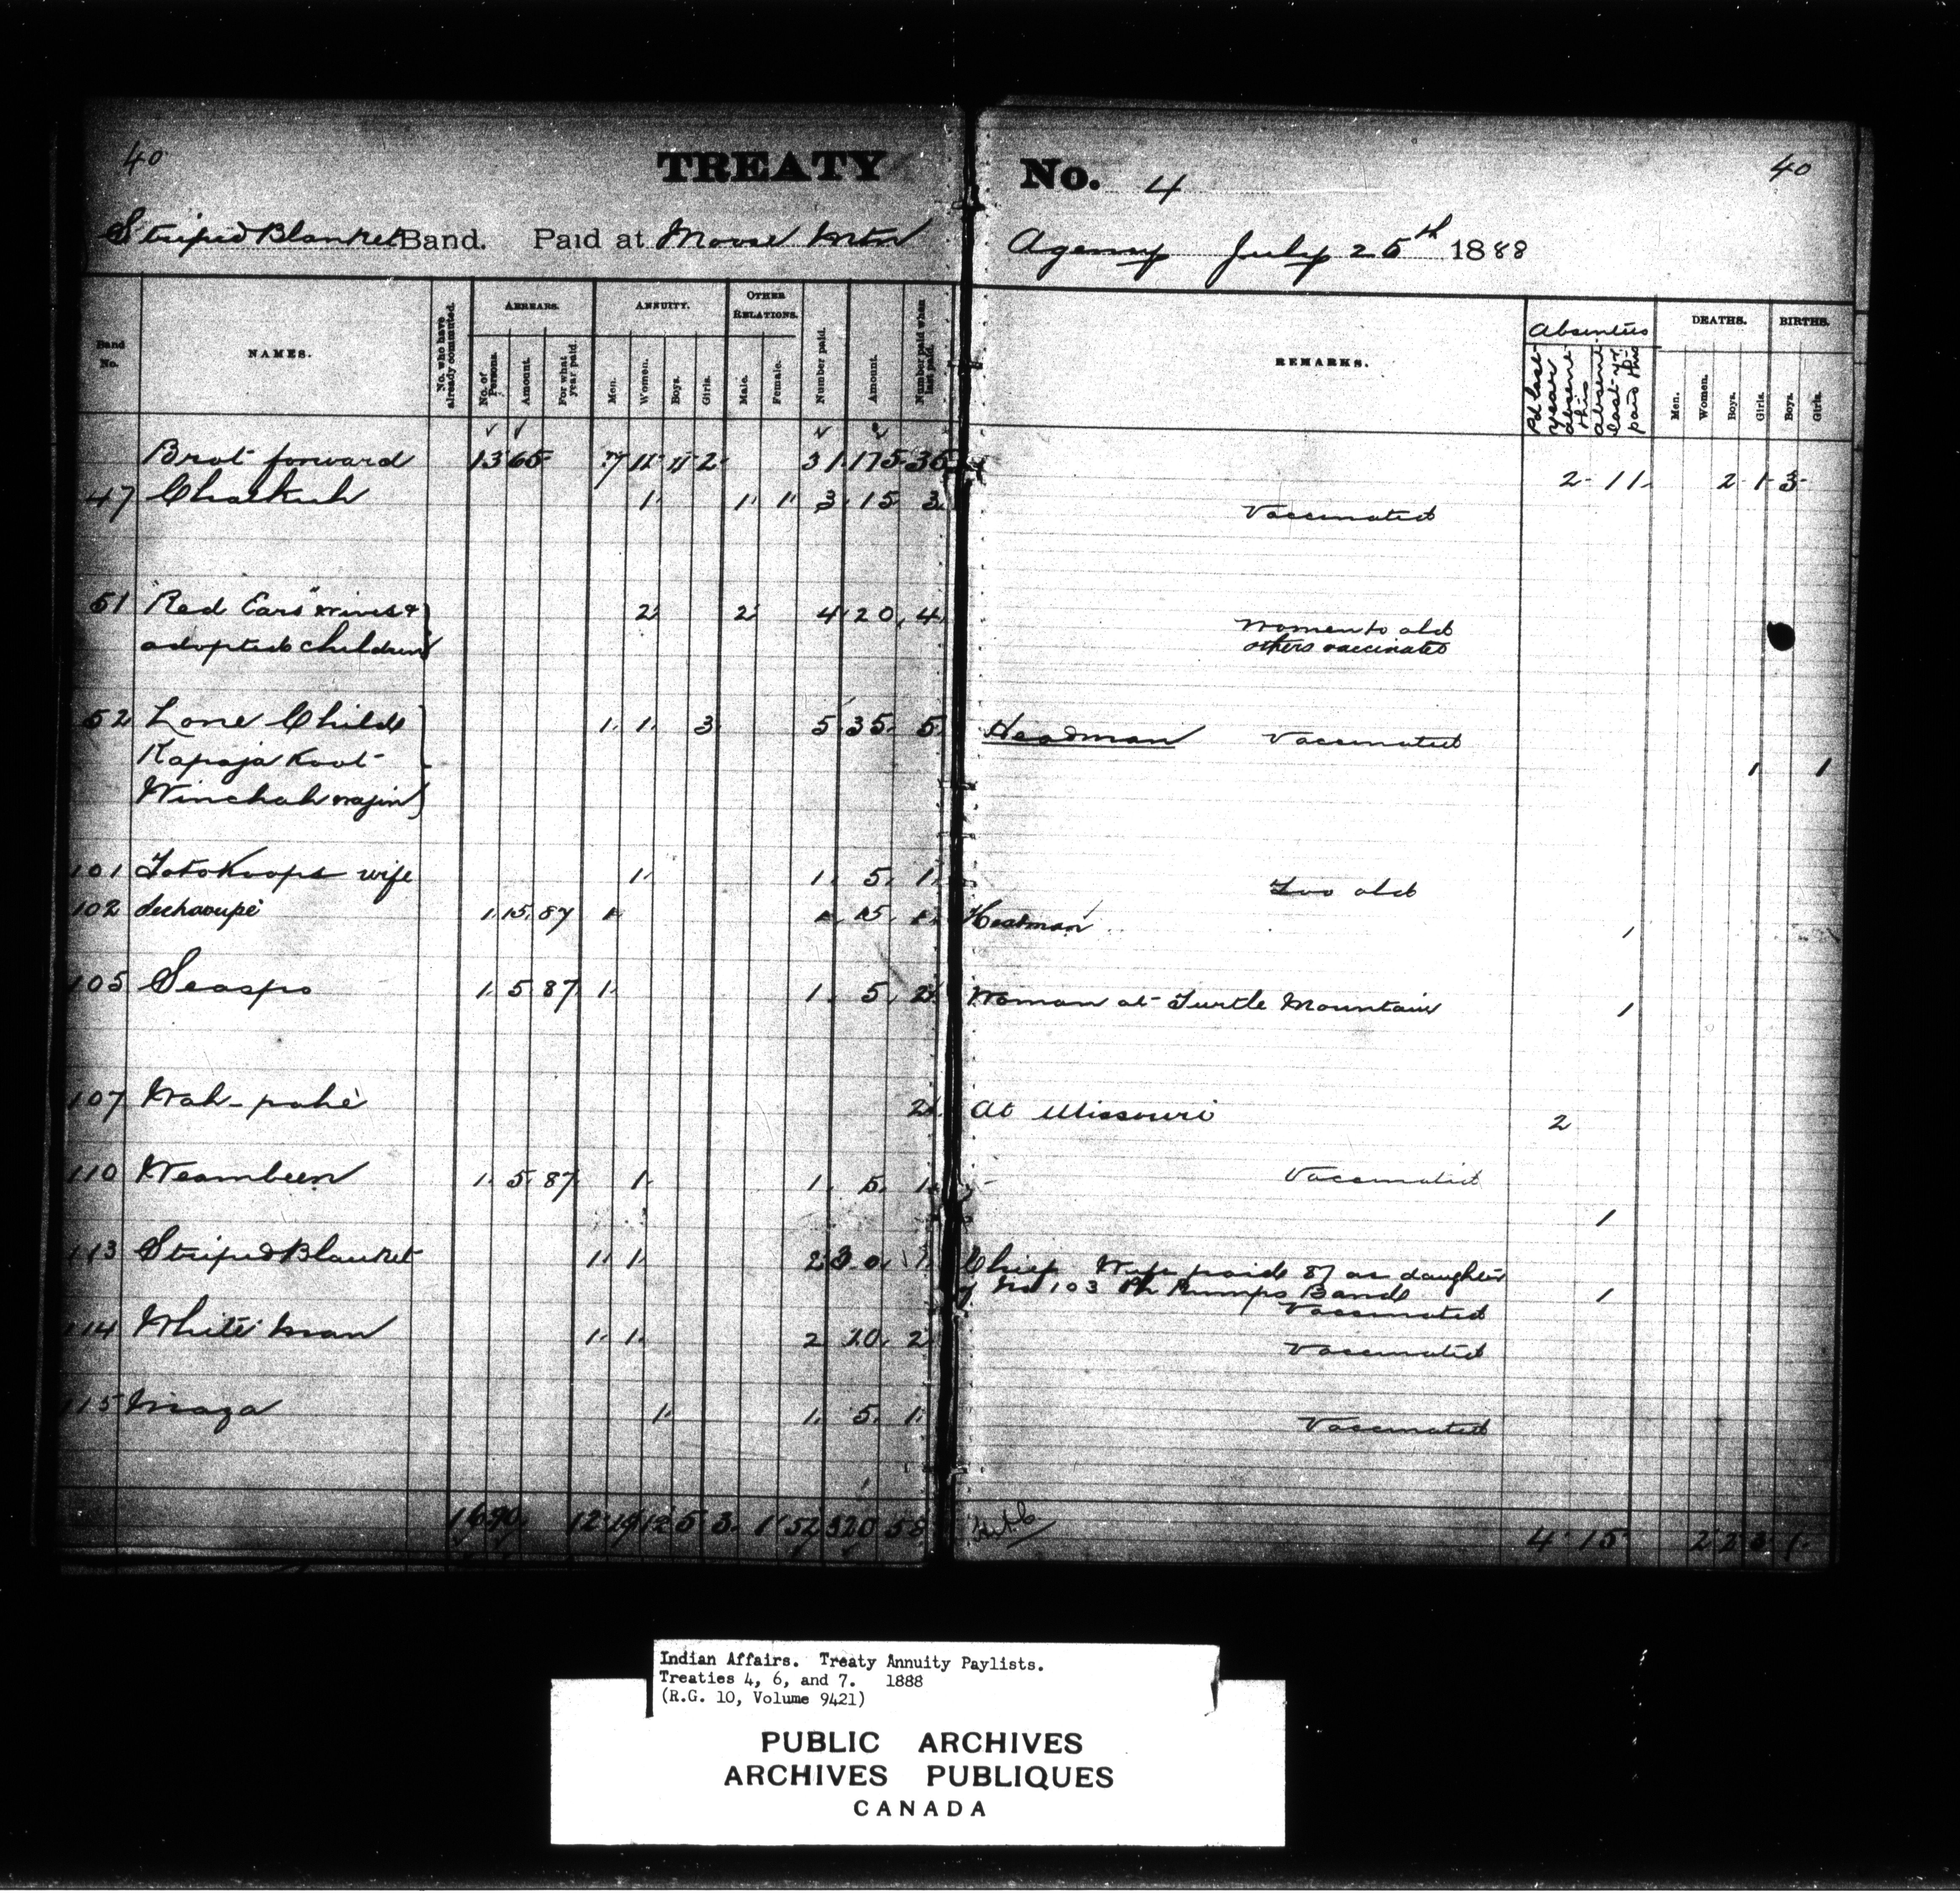 40
TREATY No. 4
40
Striped Blanket Band. Paid at Moose Mtn Agency July 25th 1888
Band No.
NAMES.
No. who have already commuted.
ARREARS.
No. of Persons.
Amount.
For what year paid.
ANNUITY.
Men.
Women.
Boys.
Girls.
OTHER RELATIONS.
Male.
Female.
Number paid.
Amount.
Number paid when last paid.
REMARKS.
Absentees
Pd last year absent this
absent last yr paid this
DEATHS.
Men.
Women.
Boys.
Girls.
BIRTHS.
Boys.
Girls.
Brot forward 13 65 7 11 11 2 31 175 36 2 11 2 1 3
47 1 1 1 3 15 3 Vaccinated
51 "Red Ears" wives & 2 2 4 20 4 Women to old
adopted children others vaccinated
52 Lone Child 1 1 3 5 35 5 Headman Vaccinated
Kapaja Koot 1 1
Winchah wajin
101 Totokoops wife 1 1 5 1 Too old
102 dechaoupé 1 15 87 1 1 15 1 Headman 1
105 Seaspo 1 5 87 1 1 5 2 Woman at Turtle Mountain 1
107 Wah-pahé 2 At Missouri 2
110 Weambeen 1 5 87 1 1 5 1 Vaccinated
1
113 Striped Blanket 1 1 2 30 1 Chief Wife paid 87 as daughter
of No 103 Ph Rumps Band 1
Vaccinated
114 White Man 1 1 2 20 2 Vaccinated
115 Maza 1 1 5 1 Vaccinated
16 90 12 19 12 5 3 1 52 320 58 4 15 2 2 3 1
Indian Affairs. Treaty Annuity Paylists.
Treaties 4, 6, and 7. 1888
(R.G. 10, Volume 9421)
PUBLIC ARCHIVES
ARCHIVES PUBLIQUES
CANADA